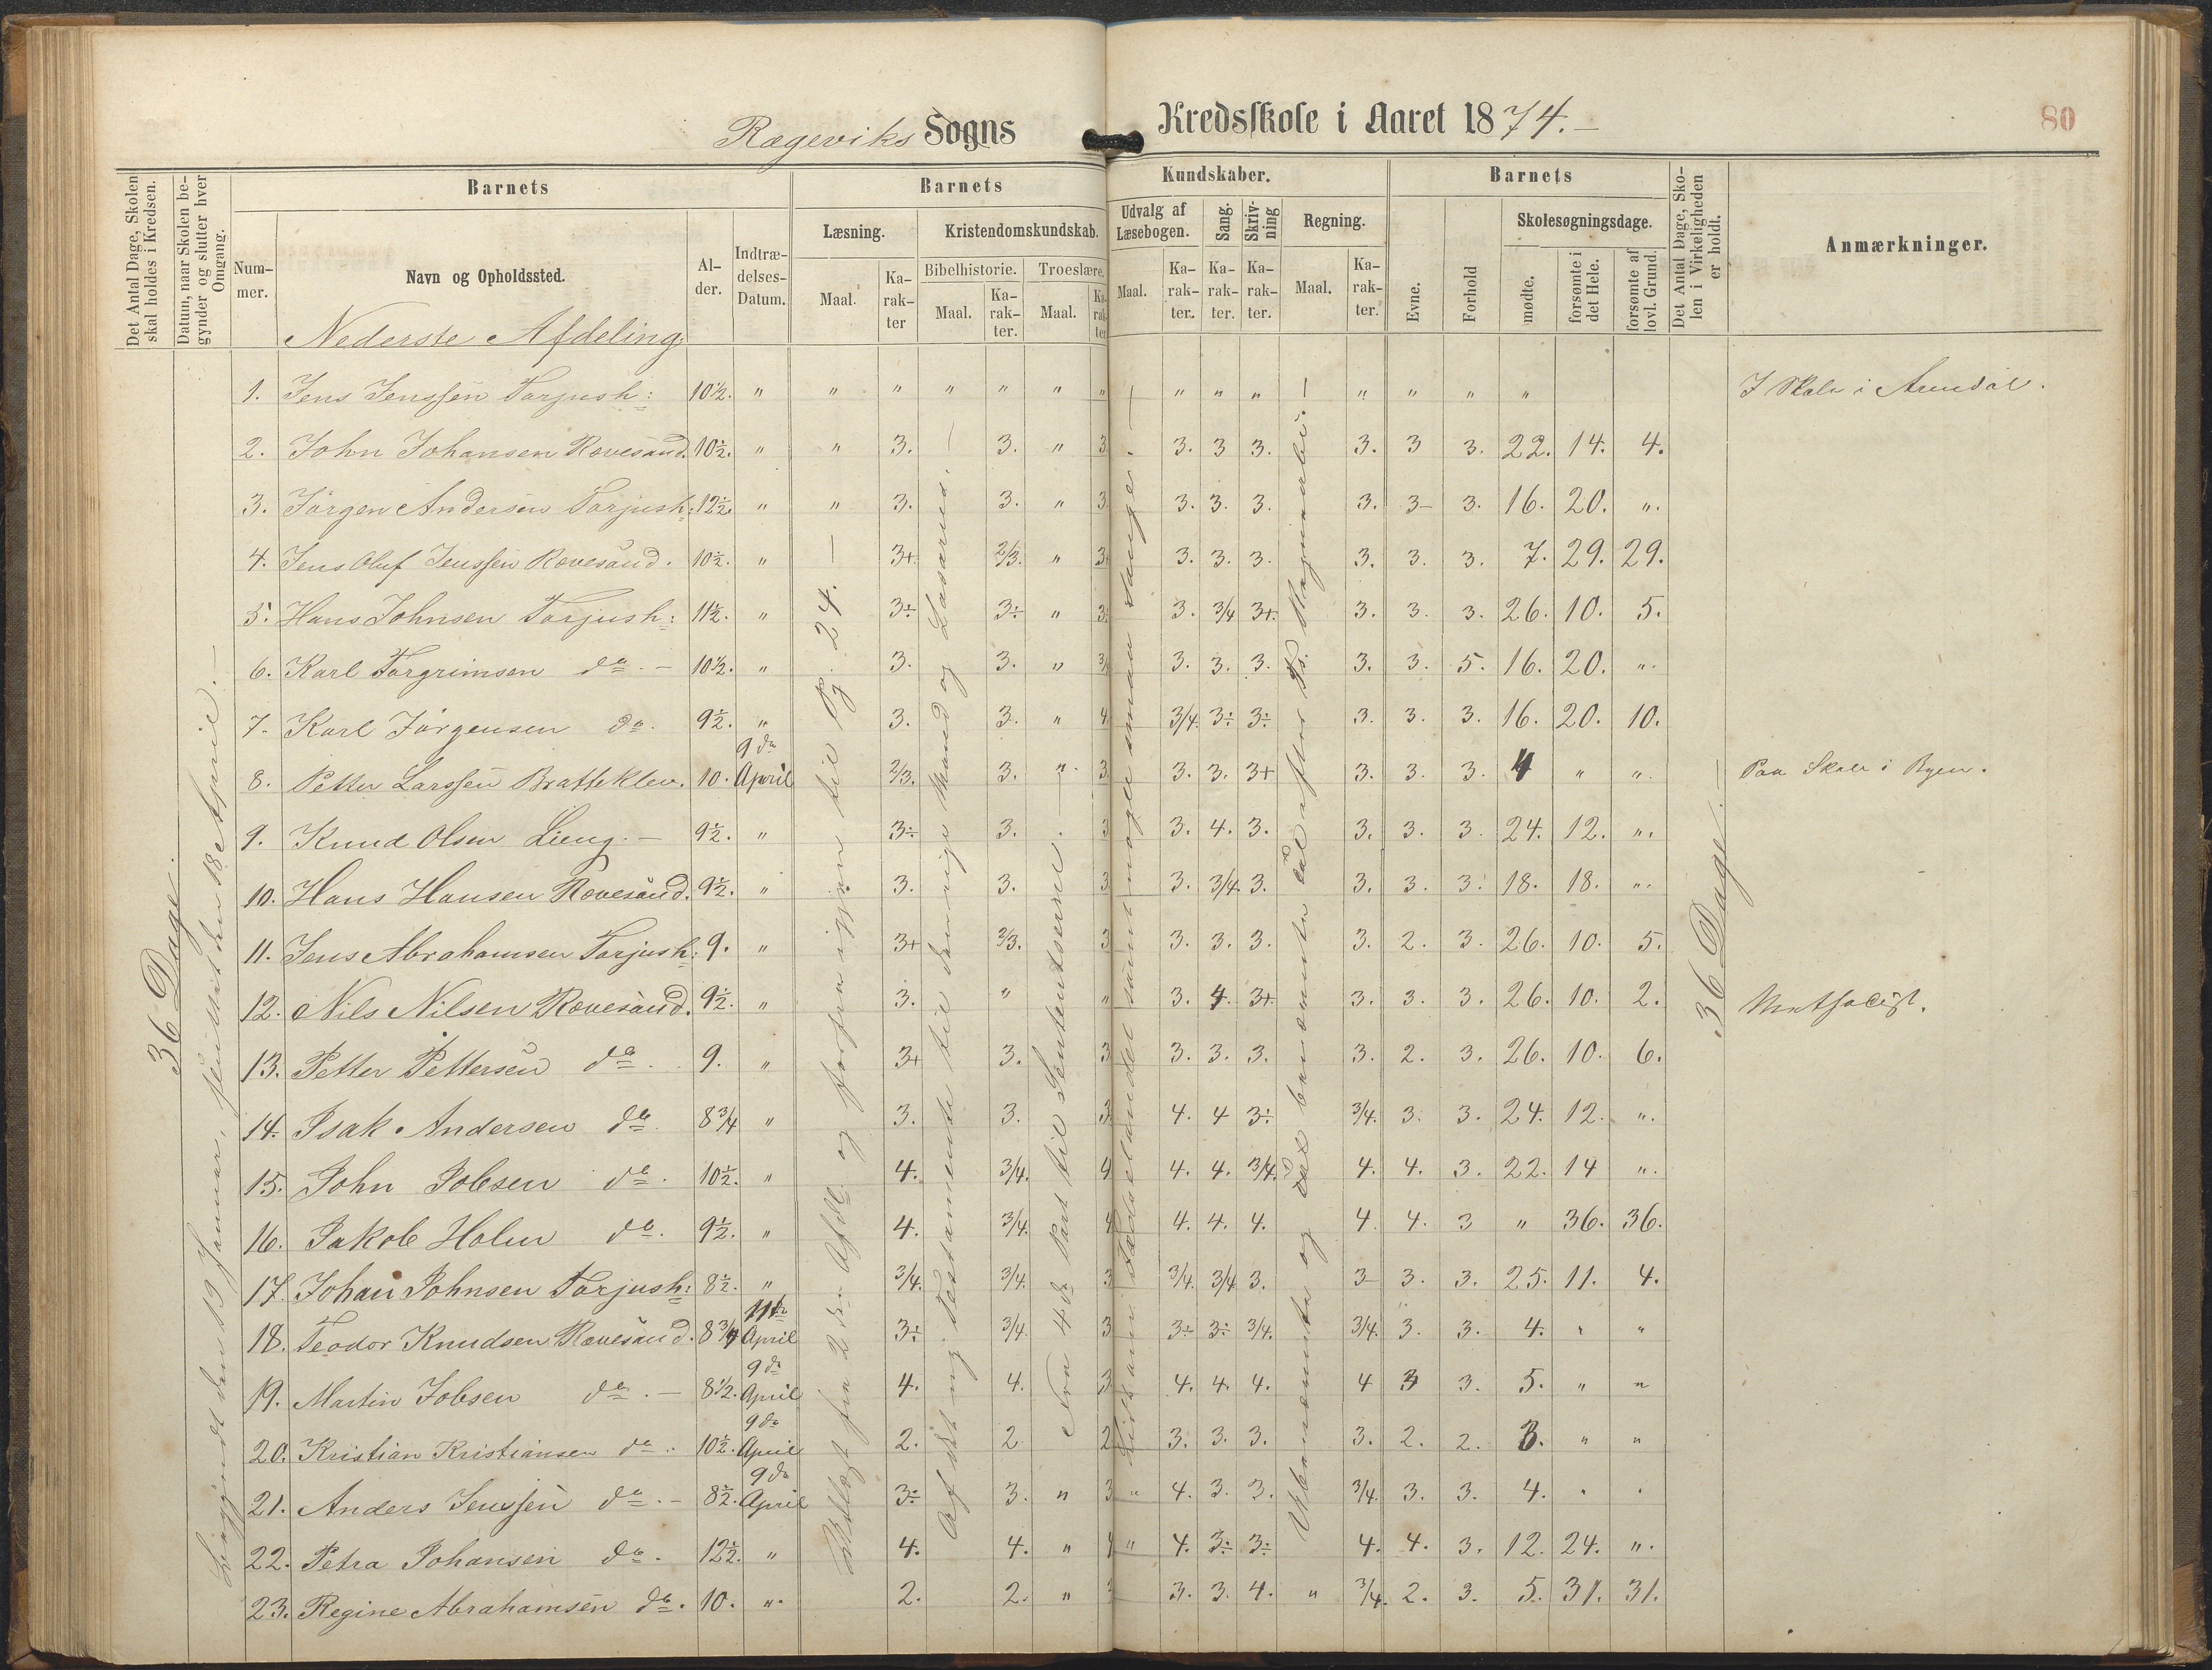 Rægeviks Sogns Kredsskole i Aaret 1874.-
80
Det Antal Dage, Skolen skal holdes i Kredsen.
Datum, naar Skolen begynder og slutter hver Omgang.
Barnets
Nummer.
Navn og Opholdssted.
Alder.
Indtrædelses-Datum.
Barnets Kundskaber.
Læsning.
Maal.
Karakter
Kristendomskundskab.
Bibelhistorie.
Maal.
Karakter.
Troeslære.
Maal.
Karakter
Udvalg af Læsebogen.
Maal.
Karakter.
Sang.
Karakter.
Skrivning
Karakter.
Regning.
Maal.
Karakter.
Barnets
Evne.
Forhold
Skolesøgningsdage.
mødte.
forsømte i det Hele.
forsømte af lovl. Grund.
Det Antal Dage, Skolen i Virkeligheden er holdt.
Anmærkninger.
Nederste Afdeling
36 Dage.
36 Dage.-
1. Jens Jenssen Torjush: 10½. " " " " " " " " " " " " " " I Skole i Arendal.
2. John Johansen Rævesand. 10½. " " 3. 3. " 3 3. 3 3. 3. 3 3. 22. 14. 4.
3. Jørgen Andersen Torjush: 12½. " " 3. 3. " 3 3. 3. 3. 3. 3- 3. 16. 20. ".
4. Jens Oluf Jenssen Rævesand. 10½. " 3+ 2/3. " 3+ 3. 3. 3. 3. 3. 3. 7. 29. 29.
5. Hans Johnsen Torjush: 11½. " 3÷ 3÷ " 3÷ 3. 3/4 3+. 3. 3. 3. 26. 10. 5.
6. Karl Torgrimsen do.- 10½. " 3. 3. " 3/4 3. 3. 3. 3. 3. 5. 16. 20. ".
7. Karl Jørgensen do. 9½. " 3. 3. " 4. 3/4. 3÷ 3÷ 3. 3. 3. 16. 20. 10.
8. Petter Larssen Bratteklev. 10. 9de April 2/3. 3. " 3 3. 3. 3+ 3. 3. 3. 4 " ". Paa Skole i Byen.
9. Knud Olsen Lieng.- 9½. " 3÷ 3. 3 3. 4. 3. 3. 3. 3. 24. 12. ".
10. Hans Hansen Rævesand. 9½. " 3. 3. 3 3. 3/4. 3. 3. 3. 3. 18. 18. ".
11. Jens Abrahamsen Torjush: 9. " 3+ 2/3. 3 3. 3. 3. 3. 2. 3. 26. 10. 5.
12. Nils Nilsen Rævesand. 9½. " 3. " " 3. 4. 3+. 3. 3. 3. 26. 10. 2.
13. Petter Pettersen do. 9. " 3+ 3. 3 3. 3. 3. 3. 2. 3. 26. 10. 6.
14. Isak Andersen do. 8¾ " 3. 3. 3 4. 4 3÷ 3/4. 3. 3. 24. 12. ".
15. John Jobsen do. 10½. " 4. 3/4. 4 4. 4. 3/4. 4. 4. 3. 22. 14 ".
16. Jakob Holm do. 9½. " 4. 3/4. 4 4. 4. 4. 4. 4. 3 " 36. 36.
17. Johan Johnsen Torjush: 8½. " 3/4. 3/4. 3 3/4. 3/4 3. 3 3. 3. 25. 11. 4.
18. Teodor Knudsen Rævesand. 8¾ 11te April 3÷ 3/4 3 3÷ 3÷ 3/4. 3/4. 3. 3. 4. " "
19. Martin Jobsen do.- 8½. 9de April 4. 4. 3 4. 4. 4. 4 3 3. 5. " "
20. Kristian Kristiansen do. 10½. 9de April 2. 2. 2 3. 3. 3. 3. 2. 2. 3. " "
21. Anders Jenssen do.- 8½. 9de April 3÷ 3. " 3 " 4. 3. 3. 3/4. 3. 3. 4. " "
22. Petra Johansen do. 12½. " 4. 4. " 4 " 4. 3÷ 3÷ 4. 4. 3. 12. 24. ".
23. Regine Abrahamsen do. 10. " 2. 2. " 3. 3. 4. " 3/4. 2. 3. 5. 31. 31.